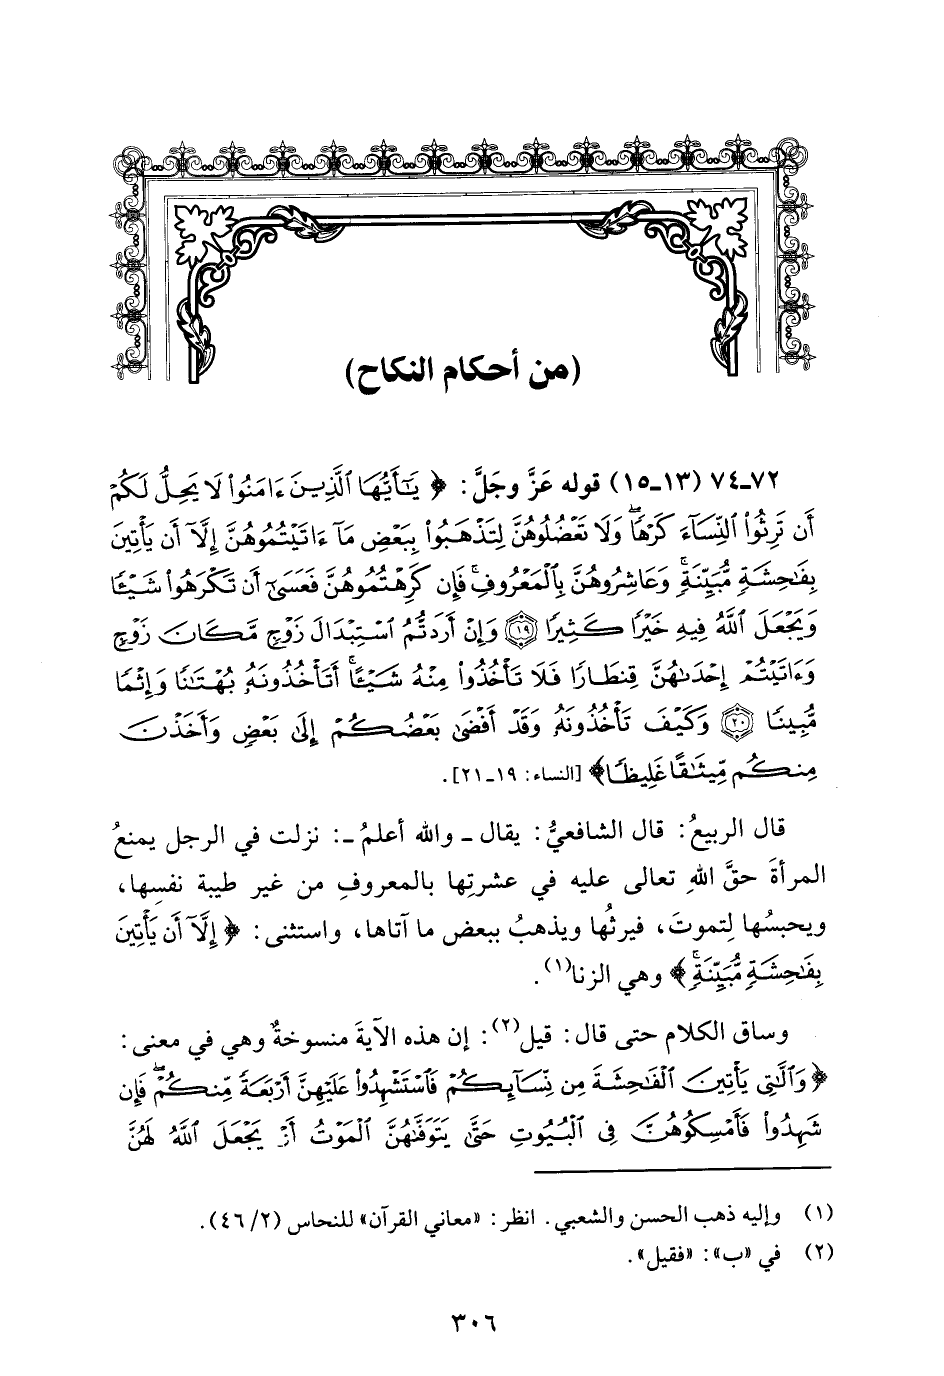 (من أحكام النكاح)
٧٢-٧٤ (١٣-١٥) قوله عَزَّ وجَلَّ: ﴿يَٰٓأَيُّهَا ٱلَّذِينَ ءَامَنُوا۟ لَا يَحِلُّ لَكُمْ
أَن تَرِثُوا۟ ٱلنِّسَآءَ كَرْهًا ۖ وَلَا تَعْضُلُوهُنَّ لِتَذْهَبُوا۟ بِبَعْضِ مَآ ءَاتَيْتُمُوهُنَّ إِلَّآ أَن يَأْتِينَ
بِفَٰحِشَةٍ مُّبَيِّنَةٍ ۚ وَعَاشِرُوهُنَّ بِٱلْمَعْرُوفِ ۚ فَإِن كَرِهْتُمُوهُنَّ فَعَسَىٰٓ أَن تَكْرَهُوا۟ شَيْـًٔا
وَيَجْعَلَ ٱللَّهُ فِيهِ خَيْرًا كَثِيرًا ۝١٩ وَإِنْ أَرَدتُّمُ ٱسْتِبْدَالَ زَوْجٍ مَّكَانَ زَوْجٍ
وَءَاتَيْتُمْ إِحْدَىٰهُنَّ قِنطَارًا فَلَا تَأْخُذُوا۟ مِنْهُ شَيْـًٔا ۚ أَتَأْخُذُونَهُۥ بُهْتَٰنًا وَإِثْمًا
مُّبِينًا ۝٢٠ وَكَيْفَ تَأْخُذُونَهُۥ وَقَدْ أَفْضَىٰ بَعْضُكُمْ إِلَىٰ بَعْضٍ وَأَخَذْنَ
مِنكُم مِّيثَٰقًا غَلِيظًا﴾ [النساء: ١٩-٢١].
قال الربيعُ: قال الشافعيُّ: يقال - والله أعلمُ -: نزلت في الرجل يمنعُ
المرأةَ حقَّ اللهِ تعالى عليه في عشرتِها بالمعروفِ من غير طيبة نفسِها،
ويحبسُها لِتموتَ، فيرثُها ويذهبُ ببعض ما آتاها، واستثنى: ﴿إِلَّآ أَن يَأْتِينَ
بِفَٰحِشَةٍ مُّبَيِّنَةٍ ۚ﴾ وهي الزنا(١).
وساق الكلام حتى قال: قيل(٢): إن هذه الآيةَ منسوخةٌ وهي في معنى:
﴿وَٱلَّٰتِى يَأْتِينَ ٱلْفَٰحِشَةَ مِن نِّسَآئِكُمْ فَٱسْتَشْهِدُوا۟ عَلَيْهِنَّ أَرْبَعَةً مِّنكُمْ ۖ فَإِن
شَهِدُوا۟ فَأَمْسِكُوهُنَّ فِى ٱلْبُيُوتِ حَتَّىٰ يَتَوَفَّىٰهُنَّ ٱلْمَوْتُ أَوْ يَجْعَلَ ٱللَّهُ لَهُنَّ
(١) وإليه ذهب الحسن والشعبي. انظر: «معاني القرآن» للنحاس (٢/ ٤٦).
(٢) في «ب»: «فقيل».
٣٠٦